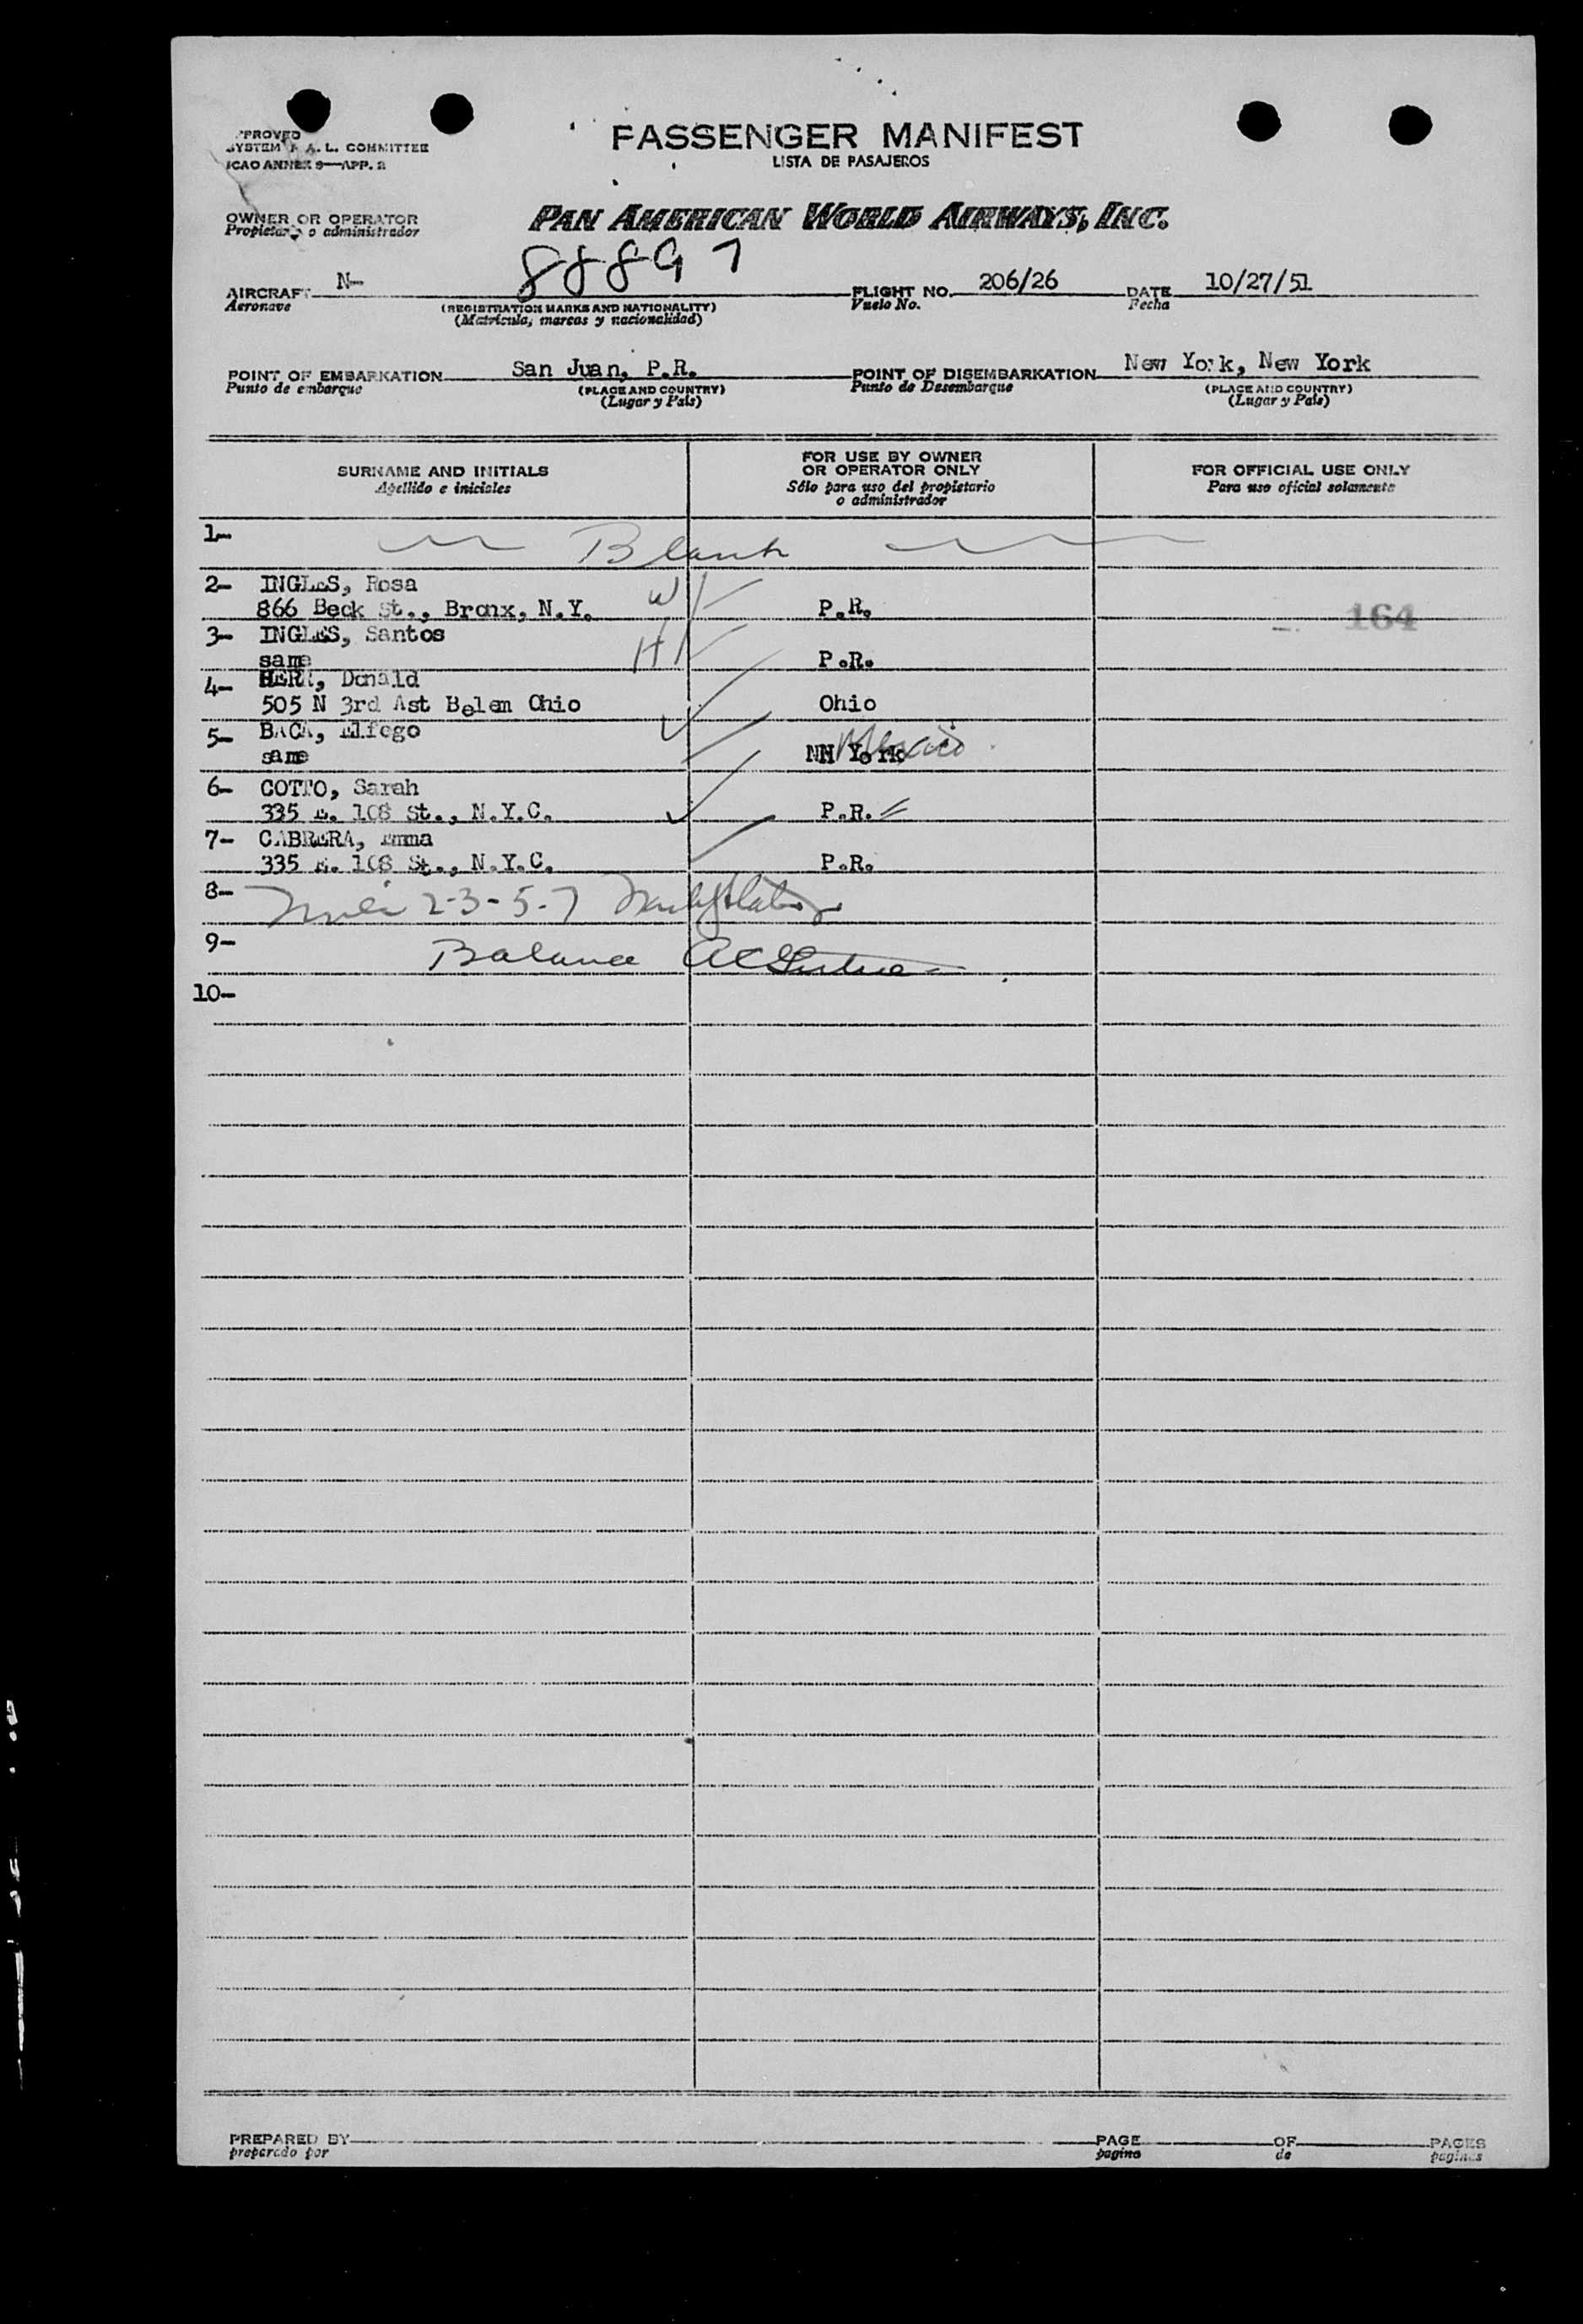 PASSENGER MANIFEST
LISTA DE PASAJEROS
SYSTEM F. A. L. COMMITTEE
ICAO ANNEX 9—APP. 2
OWNER OR OPERATOR
Propietario o administrador
PAN AMERICAN WORLD AIRWAYS, INC.
AIRCRAFT N- 88897 FLIGHT NO. 206/26 DATE 10/27/51
Aeronave (REGISTRATION MARKS AND NATIONALITY) Vuelo No. Fecha
(Matrícula, marcas y nacionalidad)
POINT OF EMBARKATION San Juan, P.R. POINT OF DISEMBARKATION New York, New York
Punto de embarque (PLACE AND COUNTRY) Punto de Desembarque (PLACE AND COUNTRY)
(Lugar y País) (Lugar y País)
SURNAME AND INITIALS FOR USE BY OWNER OR OPERATOR ONLY FOR OFFICIAL USE ONLY
Apellido e iniciales Sólo para uso del propietario o administrador Para uso oficial solamente
1- Blank
2- INGLES, Rosa W
866 Beck St., Bronx, N.Y. P.R. 164
3- INGLES, Santos H
same P.R.
4- HERR, Donald
505 N 3rd Ast Belem Ohio Ohio
5- BACA, Elfego Mexico
same NN York
6- COTTO, Sarah
335 E. 108 St., N.Y.C. P.R.
7- CABRERA, Emma
335 E. 108 St., N.Y.C. P.R.
8- 2-3-5-7
9- Balance
10-
PREPARED BY PAGE OF PAGES
preparado por pagina de paginas